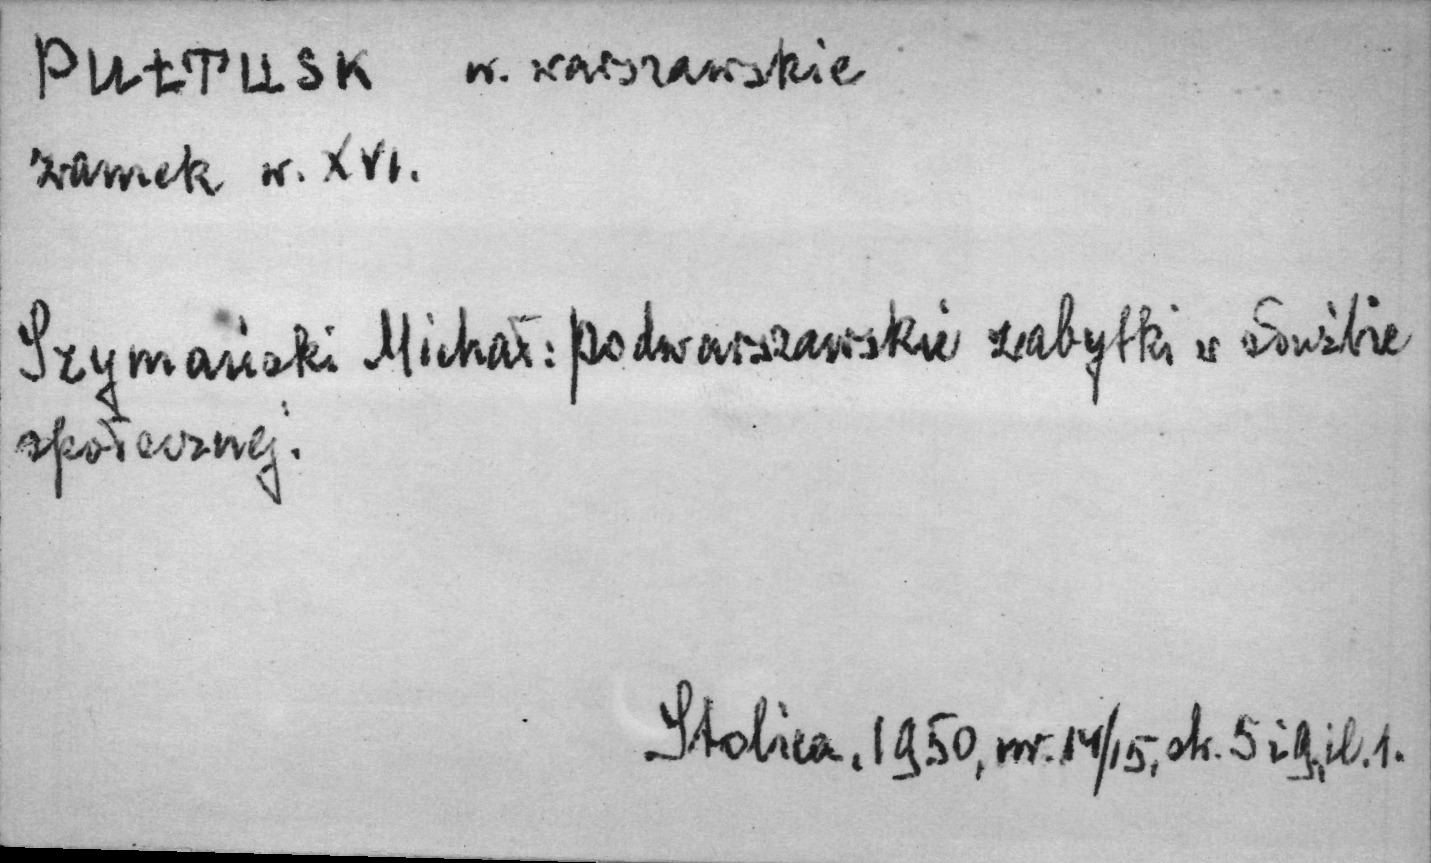 PUŁTUSK w. warszawskie
zamek w. XVI.
Szymański Michał: podwarszawskie zabytki w służbie
społecznej.
Stolica, 1950, nr. 14/15, str. 5 i 9, il. 1.